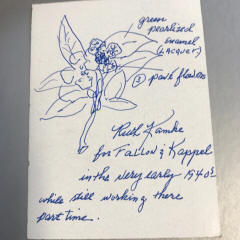 green
pearlized
enamel
(LACQUER)
③ pave flowers
Ruth Kamke
for Fallon & Kappel
in the very early 1940s
while still working there
part time.